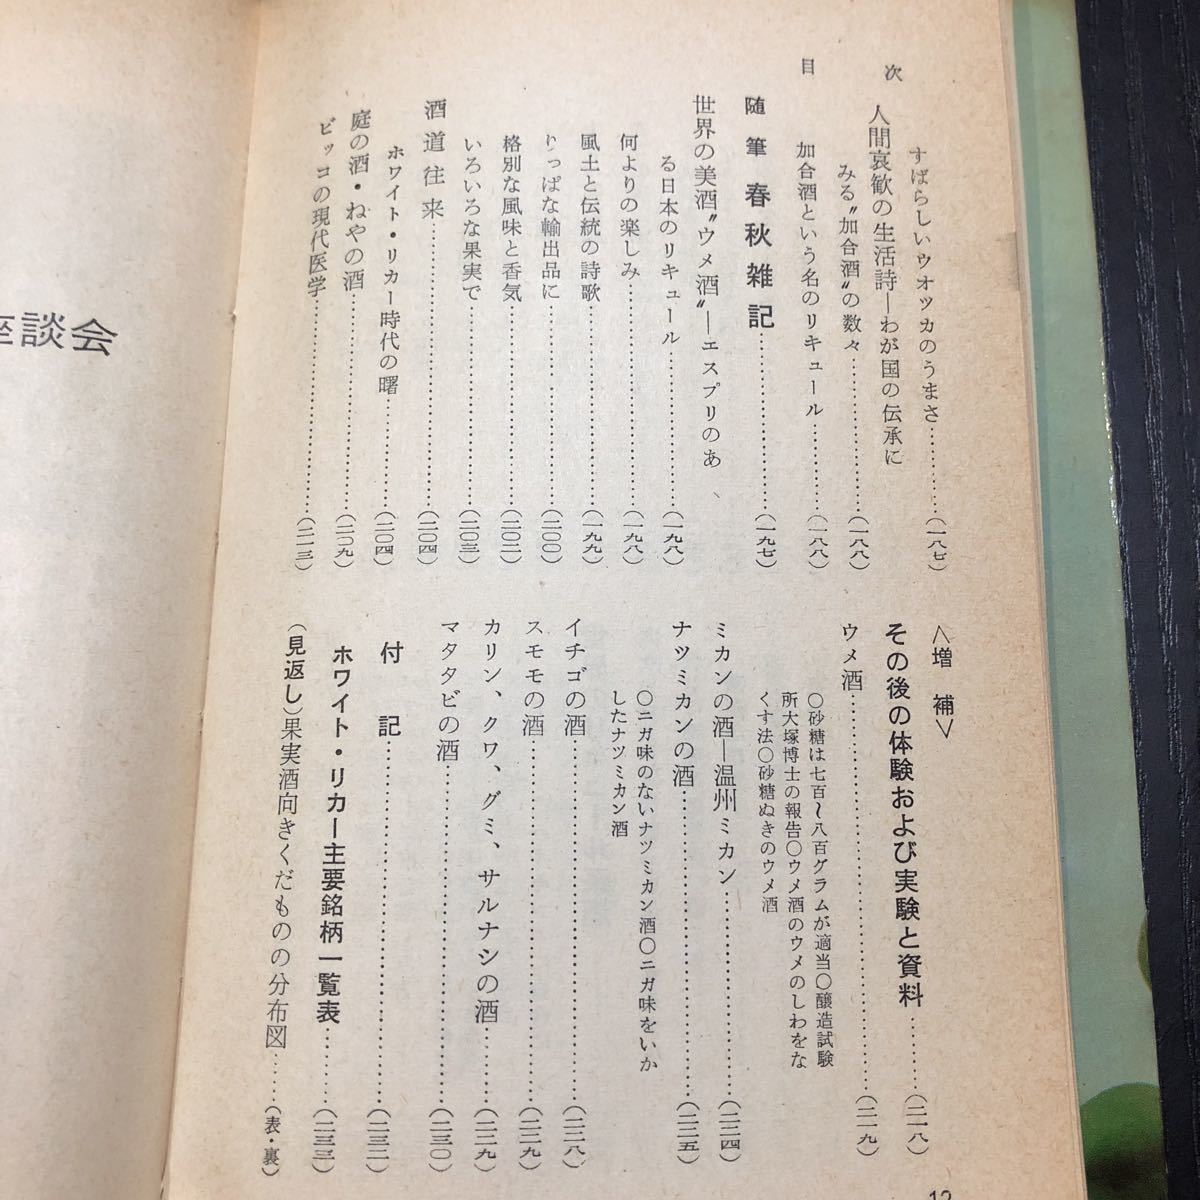 目次
すばらしいウオッカのうまさ………(一八七)
人間哀歓の生活詩―わが国の伝承に
みる〝加合酒〟の数々………(一八八)
加合酒という名のリキュール………(一八八)
随筆 春秋雑記………(一九七)
世界の美酒〝ウメ酒〟―エスプリのあ
る日本のリキュール………(一九八)
何よりの楽しみ………(一九八)
風土と伝統の詩歌………(一九九)
りっぱな輸出品に………(二〇〇)
格別な風味と香気………(二〇二)
いろいろな果実で………(二〇三)
酒道往来………(二〇四)
ホワイト・リカー時代の曙………(二〇四)
庭の酒・ねやの酒………(二〇九)
ビッコの現代医学………(二一三)
〈増補〉
その後の体験および実験と資料………(二一八)
ウメ酒………(二一九)
〇砂糖は七百〜八百グラムが適当〇醸造試験
所大塚博士の報告〇ウメ酒のウメのしわをな
くす法〇砂糖ぬきのウメ酒
ミカンの酒―温州ミカン………(二二四)
ナツミカンの酒………(二二五)
〇ニガ味のないナツミカン酒〇ニガ味をいか
したナツミカン酒
イチゴの酒………(二二八)
スモモの酒………(二二九)
カリン、クワ、グミ、サルナシの酒………(二二九)
マタタビの酒………(二三〇)
付記………(二三二)
ホワイト・リカー主要銘柄一覧表………(二三三)
(見返し)果実酒向きくだものの分布図………(表・裏)
12
座談会